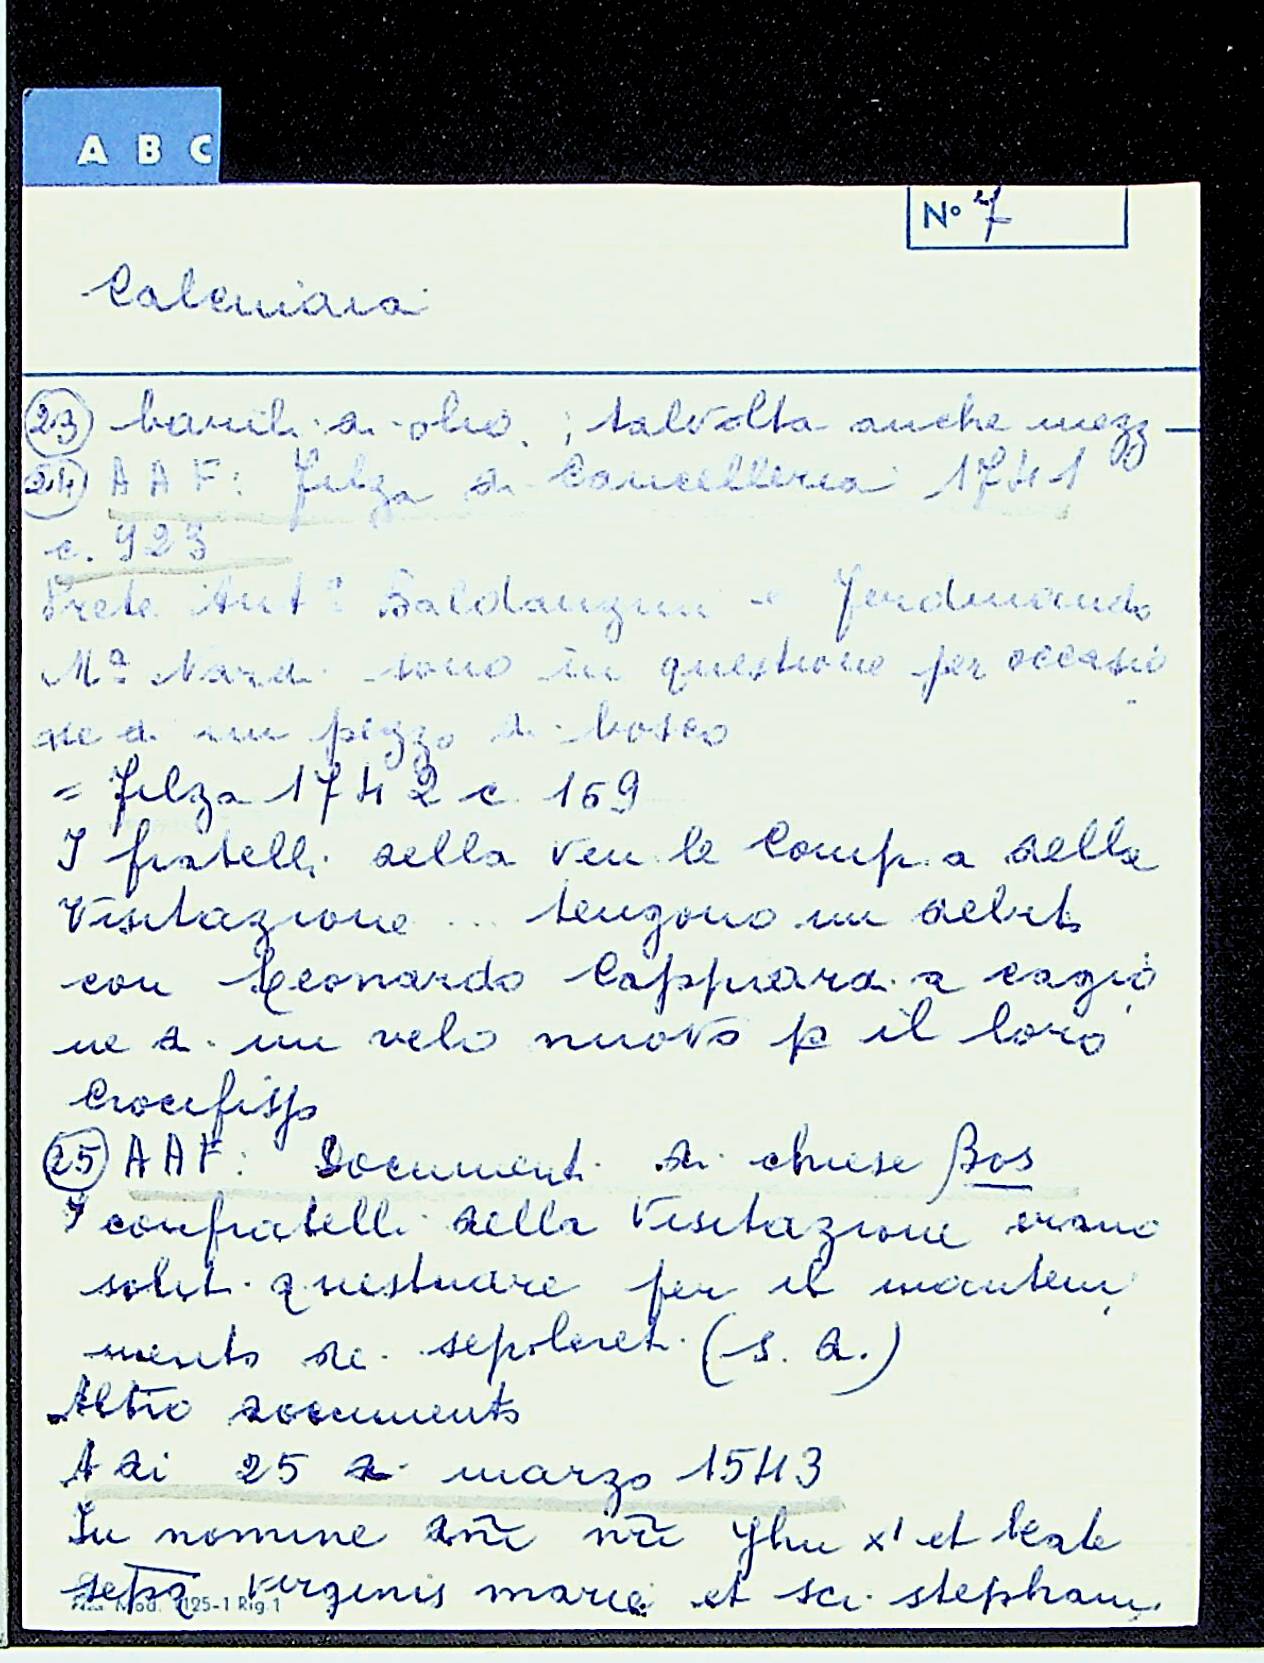 A B C
N° 7
Calcinaia
23 barili di olio ; talvolta anche mezz—
24 AAF: Filza di Cancelleria 1741
c. 923
Prete Ant° Baldanzini e Ferdinando
M.a Nardi sono in questione per occasio
ne di un pezzo di bosco
= Filza 1742 c. 169
I fratelli della ven le Comp.a della
Visitazione ... tengono un debito
con Leonardo Cappiardi a cagio
ne di un velo nuovo p il loro
Crocifisso
25 AAF: Documenti di chiese B os
I confratelli della Visitazione erano
soliti questuare per il manteni
mento dei sepolcreti (s. d.)
Altro documento
A di 25 di marzo 1543
In nomine dnĩ nrĩ Yhu x' et beate
sepq virginis marie et sci stephani
Mod. 125-1 Rig.1